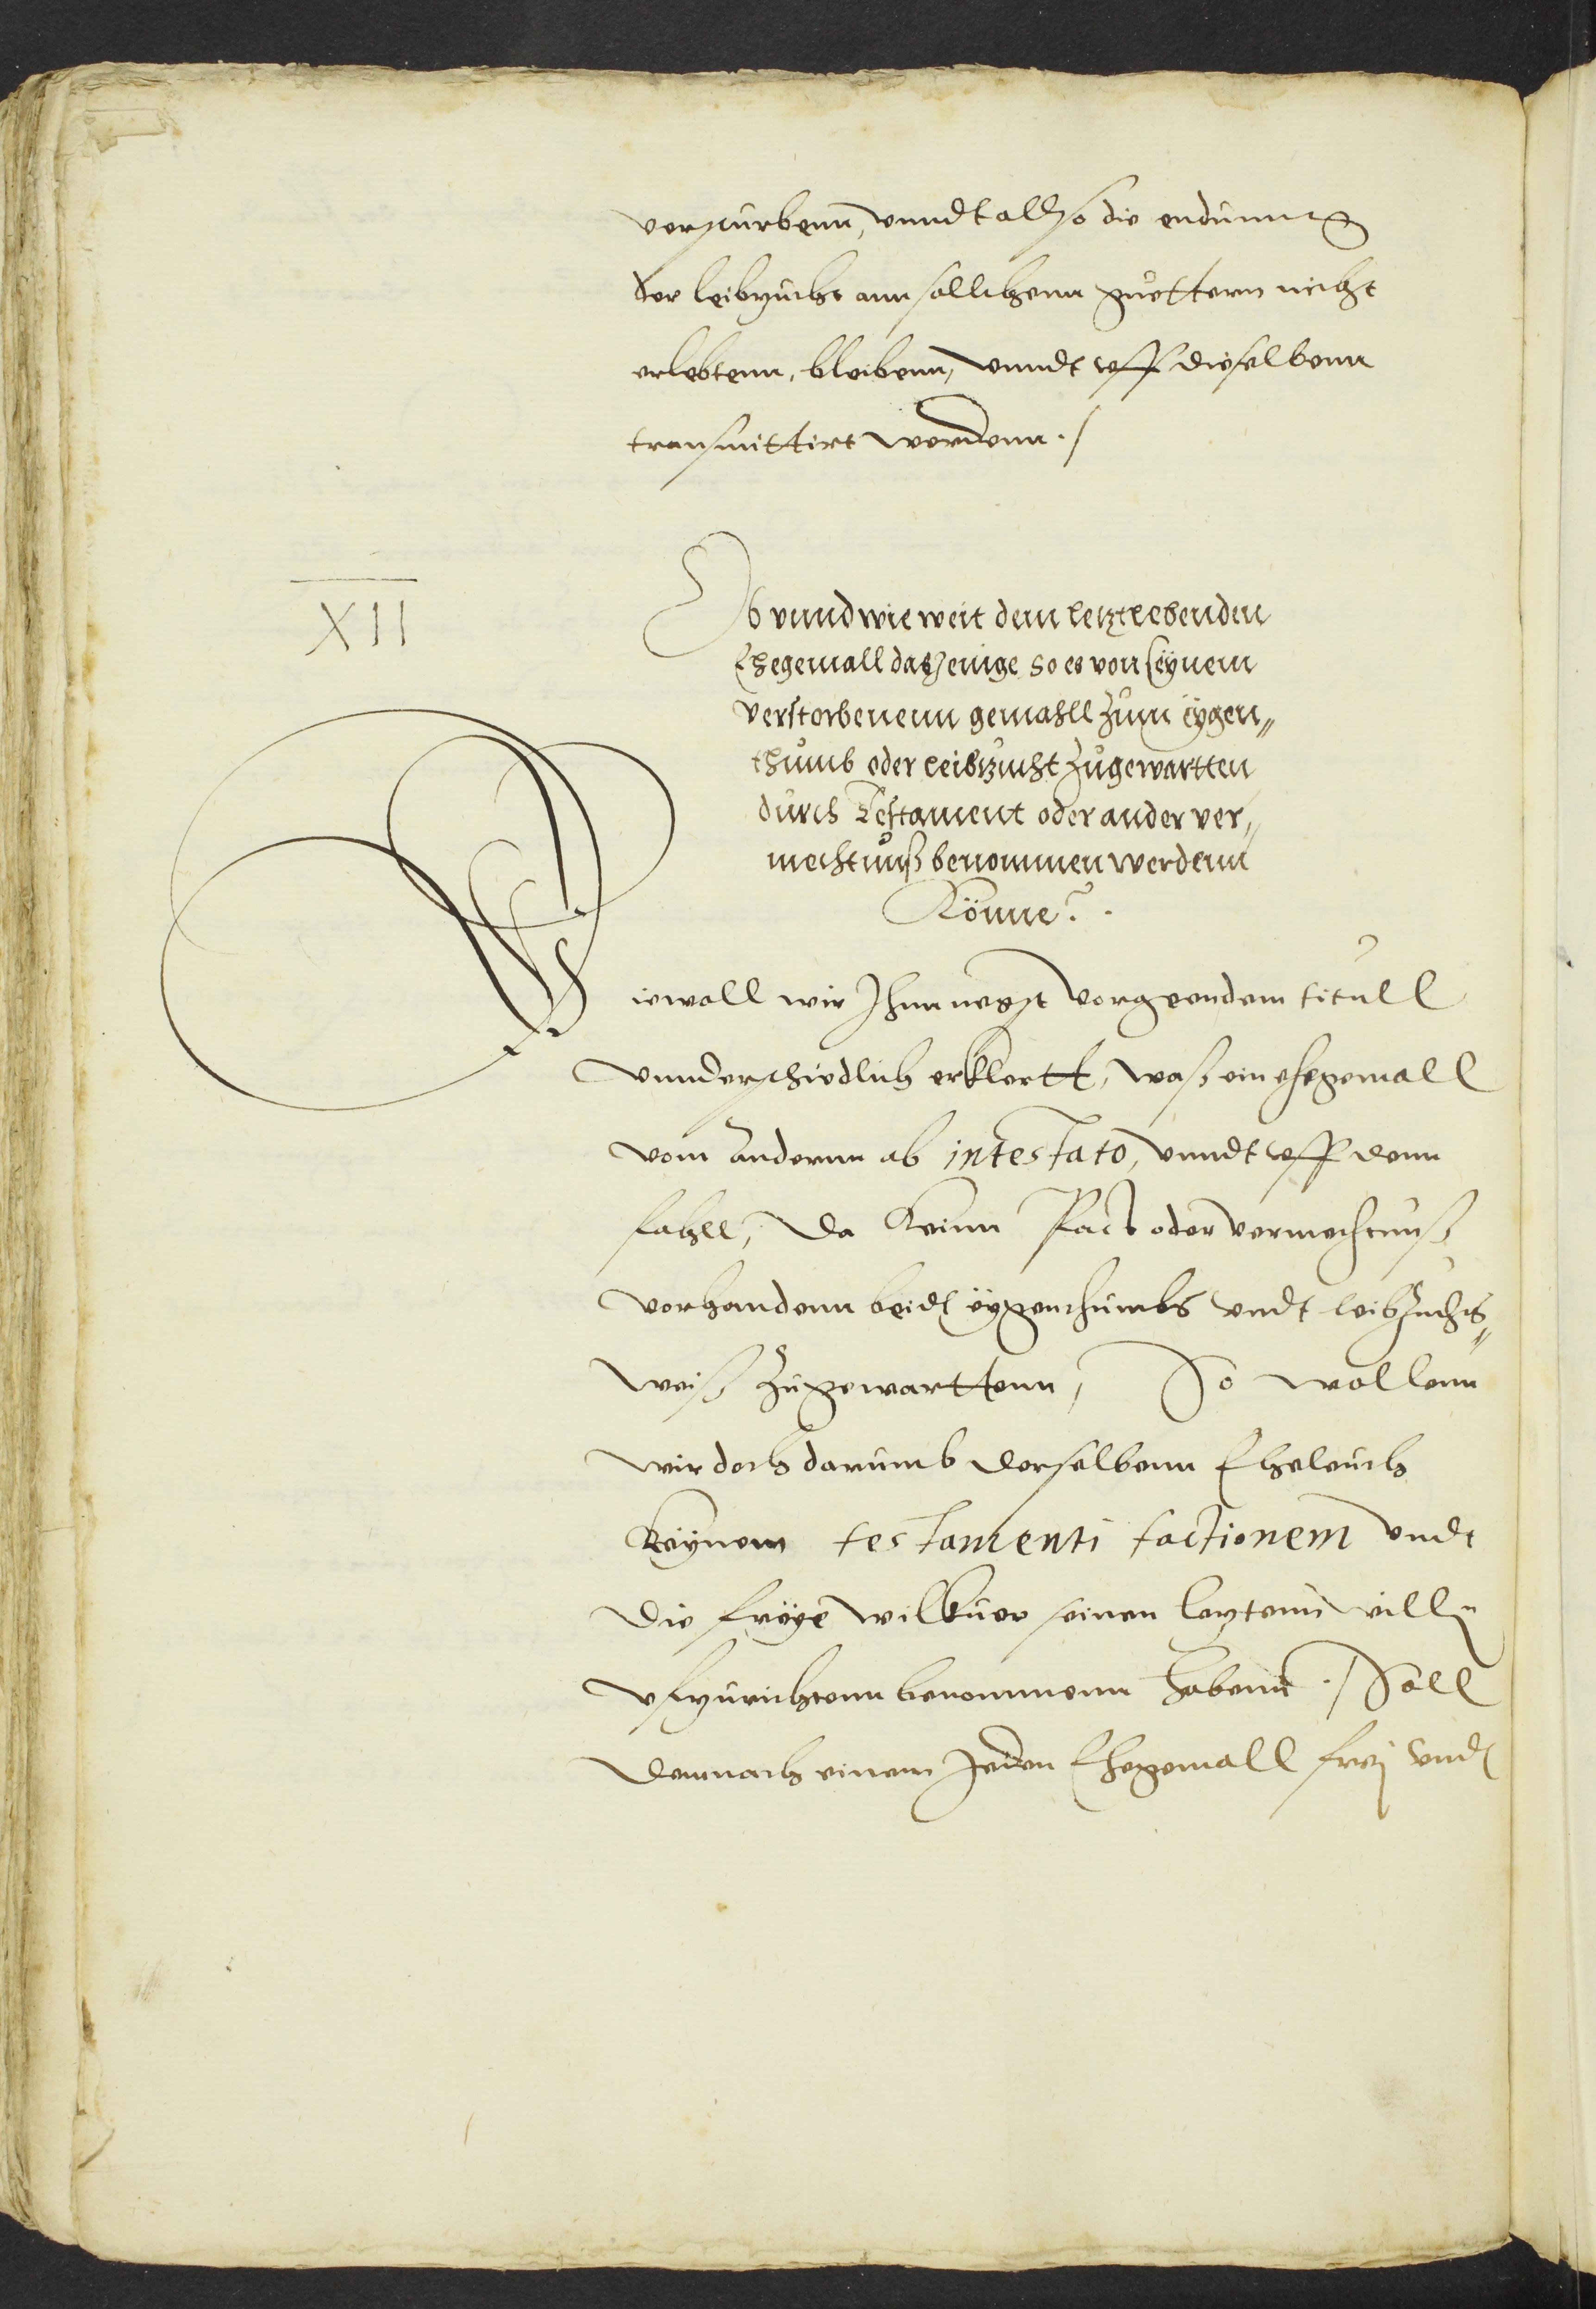 versturbenn, vnndt allso die endunng
der leibzucht ann sollichenn guettern nicht
erlebtenn, bleibenn, vnndt vff dieselbenn
transmittirt werdenn ./
XII
Ob vnnd wie weit dem letztlebenden
Ehegemall dasJenige so es von seÿnem
verstorbenenn gemahll zum eÿgen„
thumb oder leibtzucht zugewartten
durch Testament oder ander ver„
mechtnuß benommen werdenn
Könne? .
Wiewoll wir Jhnn negst vorgeendem titull
vnnderschiedlich erklertt, waß ein ehegemall
vom andernn ab intestato, vnndt vff denn
fahll, da Keinn Pact oder vermechtnuß
vorhandenn beides eÿgenthumbs vndt leibzuchts„
weiß zugewarttenn, So wollenn
wir doch darumb derselbenn Eheleuth
Keÿnem testamenti factionem vndt
die freÿe wilkuer seinen letztenn willen
vffzurichtenn benommenn habenn ./ Soll
demnach einem Jeden Ehegemall freÿ vnd